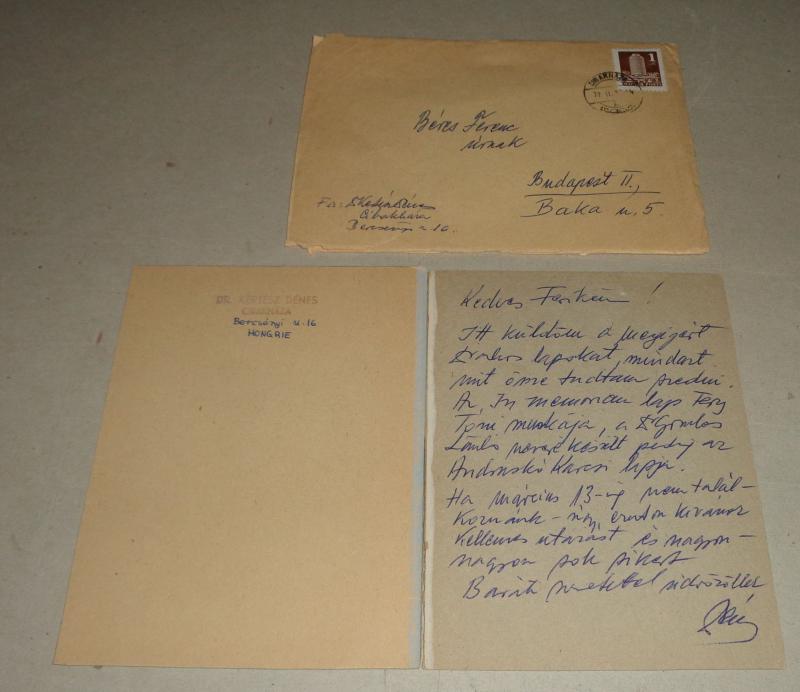 1
CIBAKHÁZA
Béres Ferenc
úrnak
Budapest II.,
Baka u. 5.
Fa: Dr Kertész Dénes
Cibakháza
Bercsényi u 16.
DR. KERTÉSZ DÉNES
CIBAKHÁZA
Bercsényi u. 16
HONGRIE
Kedves Ferikém!
Itt küldöm a megígért
lapokat, mindazt
mit össze tudtam szedni.
Az „In memoriam lap Fery
Toni munkája, a Dr Gombos
László nevére készült pedig az
Andruskó Karcsi lapja.
Ha március 13-ig nem talál-
koznánk – úgy, ezúton kívánok
kellemes utazást és nagyon-
nagyon sok sikert
Baráti szeretettel üdvözöllek
Dénes